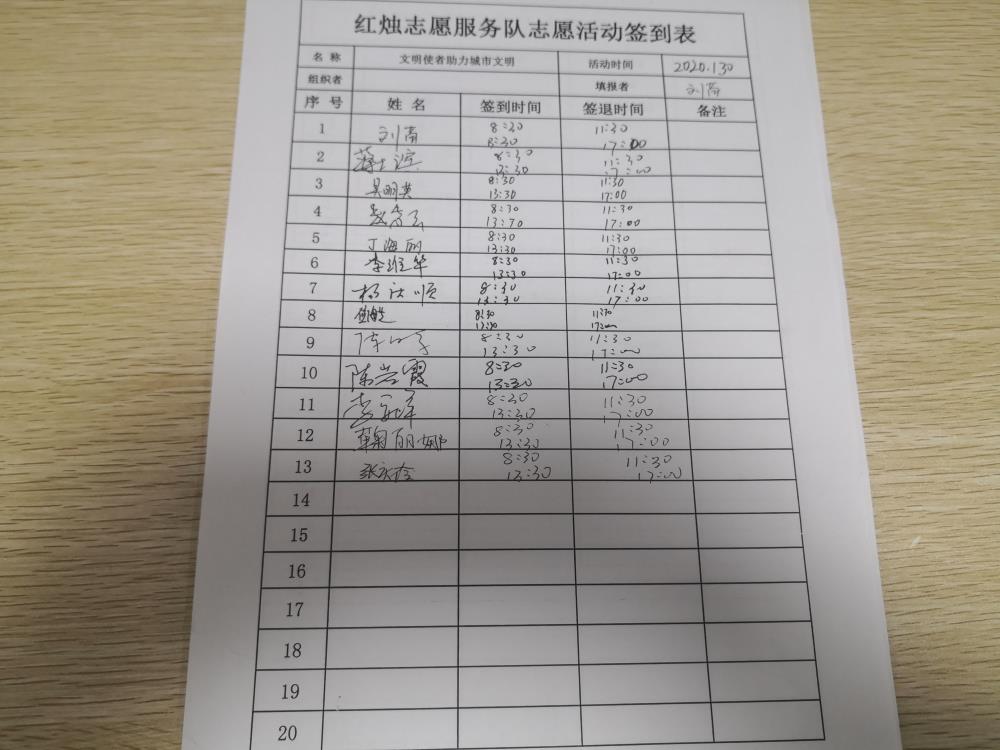 红烛志愿服务队志愿活动签到表
名 称 文明使者助力城市文明 活动时间 2020.1.30
组织者 填报者 刘菊
序 号 姓 名 签到时间 签退时间 备注
1 刘菊 8:30 11:30
13:30 17:00
2 8:30 11:30
13:30 17:00
3 吴明英 8:30 11:30
13:30 17:00
4 8:30 11:30
13:30 17:00
5 丁海丽 8:30 11:30
13:30 17:00
6 李维华 8:30 11:30
13:30 17:00
7 杨庆顺 8:30 11:30
13:30 17:00
8 8:30 11:30
13:30 17:00
9 8:30 11:30
13:30 17:00
10 陈岩霞 8:30 11:30
13:30 17:00
11 8:30 11:30
13:30 17:00
12 鞠丽娜 8:30 11:30
13:30 17:00
13 8:30 11:30
13:30 17:00
14
15
16
17
18
19
20